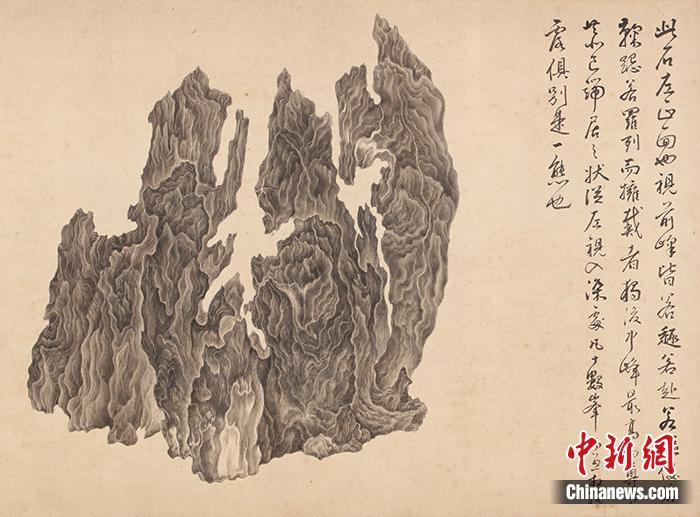 此石左正面也視前峰皆若趨若赴若
聽若羅列而擁戴者獨後中峰最高
恭己端居之狀從左視入深處凡十數峰
露俱別是一態也
中新网
Chinanews.com